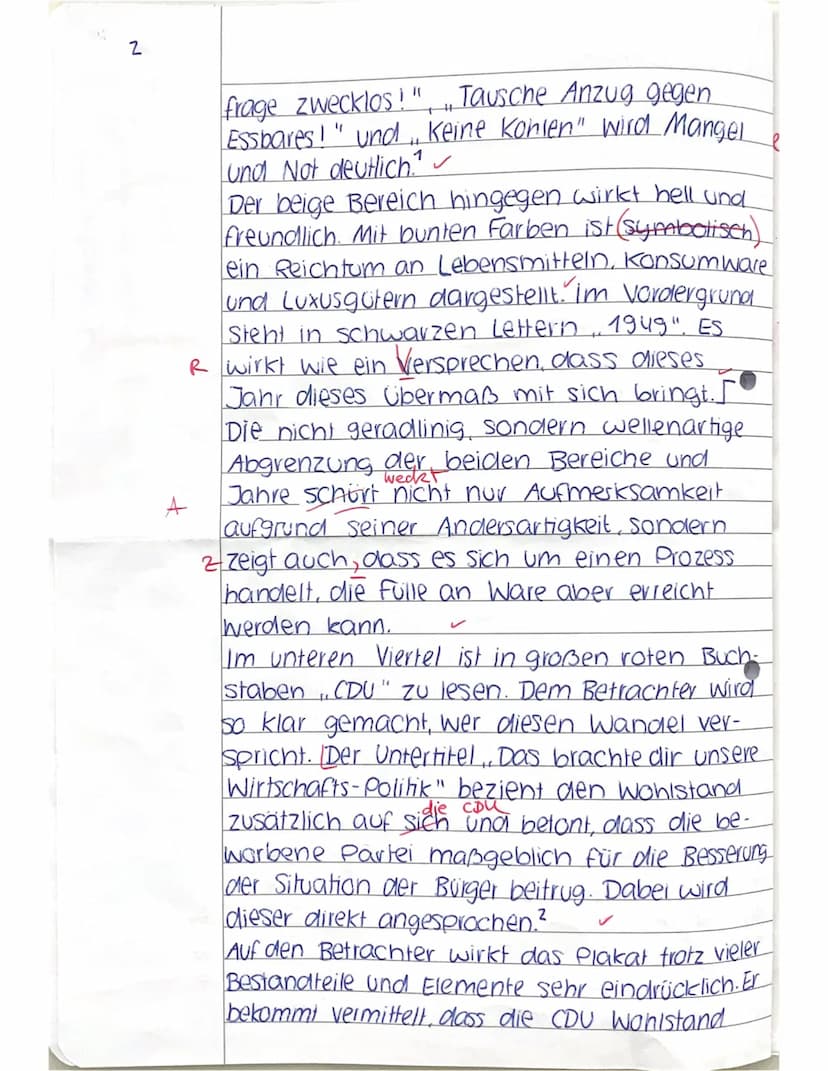 2
frage zwecklos!", „Tausche Anzug gegen
Essbares!" und „Keine Kohlen" wird Mangel
und Not deutlich.¹ ✓
Der beige Bereich hingegen wirkt hell und
freundlich. Mit bunten Farben ist (symbolisch)
ein Reichtum an Lebensmitteln, Konsumware
und Luxusgütern dargestellt.✓ Im Vordergrund
steht in schwarzen Lettern „1949". Es
R wirkt wie ein Versprechen, dass dieses
Jahr dieses Übermaß mit sich bringt.
Die nicht geradlinig, sondern wellenartige
Abgrenzung der beiden Bereiche und
weckt
A Jahre schürt nicht nur Aufmerksamkeit
aufgrund seiner Andersartigkeit, sondern
Z zeigt auch, dass es sich um einen Prozess
handelt, die Fülle an Ware aber erreicht
werden kann. ✓
Im unteren Viertel ist in großen roten Buch-
staben „CDU" zu lesen. Dem Betrachter wird
so klar gemacht, wer diesen Wandel ver-
spricht. Der Untertitel „Das brachte dir unsere
Wirtschafts-Politik" bezieht den Wohlstand
die CDU
zusätzlich auf sich und betont, dass die be-
worbene Partei maßgeblich für die Besserung
der Situation der Bürger beitrug. Dabei wird
dieser direkt angesprochen.² ✓
Auf den Betrachter wirkt das Plakat trotz vieler
Bestandteile und Elemente sehr eindrücklich. Er
bekommt vermittelt, dass die CDU Wohlstand